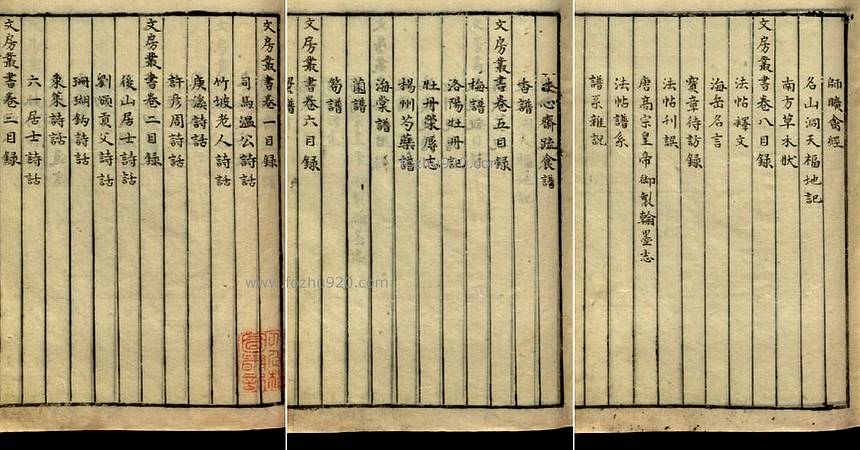 文房叢書卷一目録
司馬溫公詩話
竹坡老人詩話
庚溪詩話
許彥周詩話
文房叢書卷二目録
後山居士詩話
劉頒貢父詩話
珊瑚鈎詩話
東萊詩話
六一居士詩話
文房叢書卷三目録
本心齋蔬食譜
香譜
文房叢書卷五目録
梅譜
洛陽牡丹記
牡丹榮辱志
揚州芍藥譜
海棠譜
菌譜
筍譜
文房叢書卷六目録
師曠禽經
名山洞天福地記
南方草木狀
文房叢書卷八目録
法帖釋文
海岳名言
寶章待訪錄
法帖刊誤
唐高宗皇帝御製翰墨志
法帖譜系
譜系雜說
www.fozhu920.com